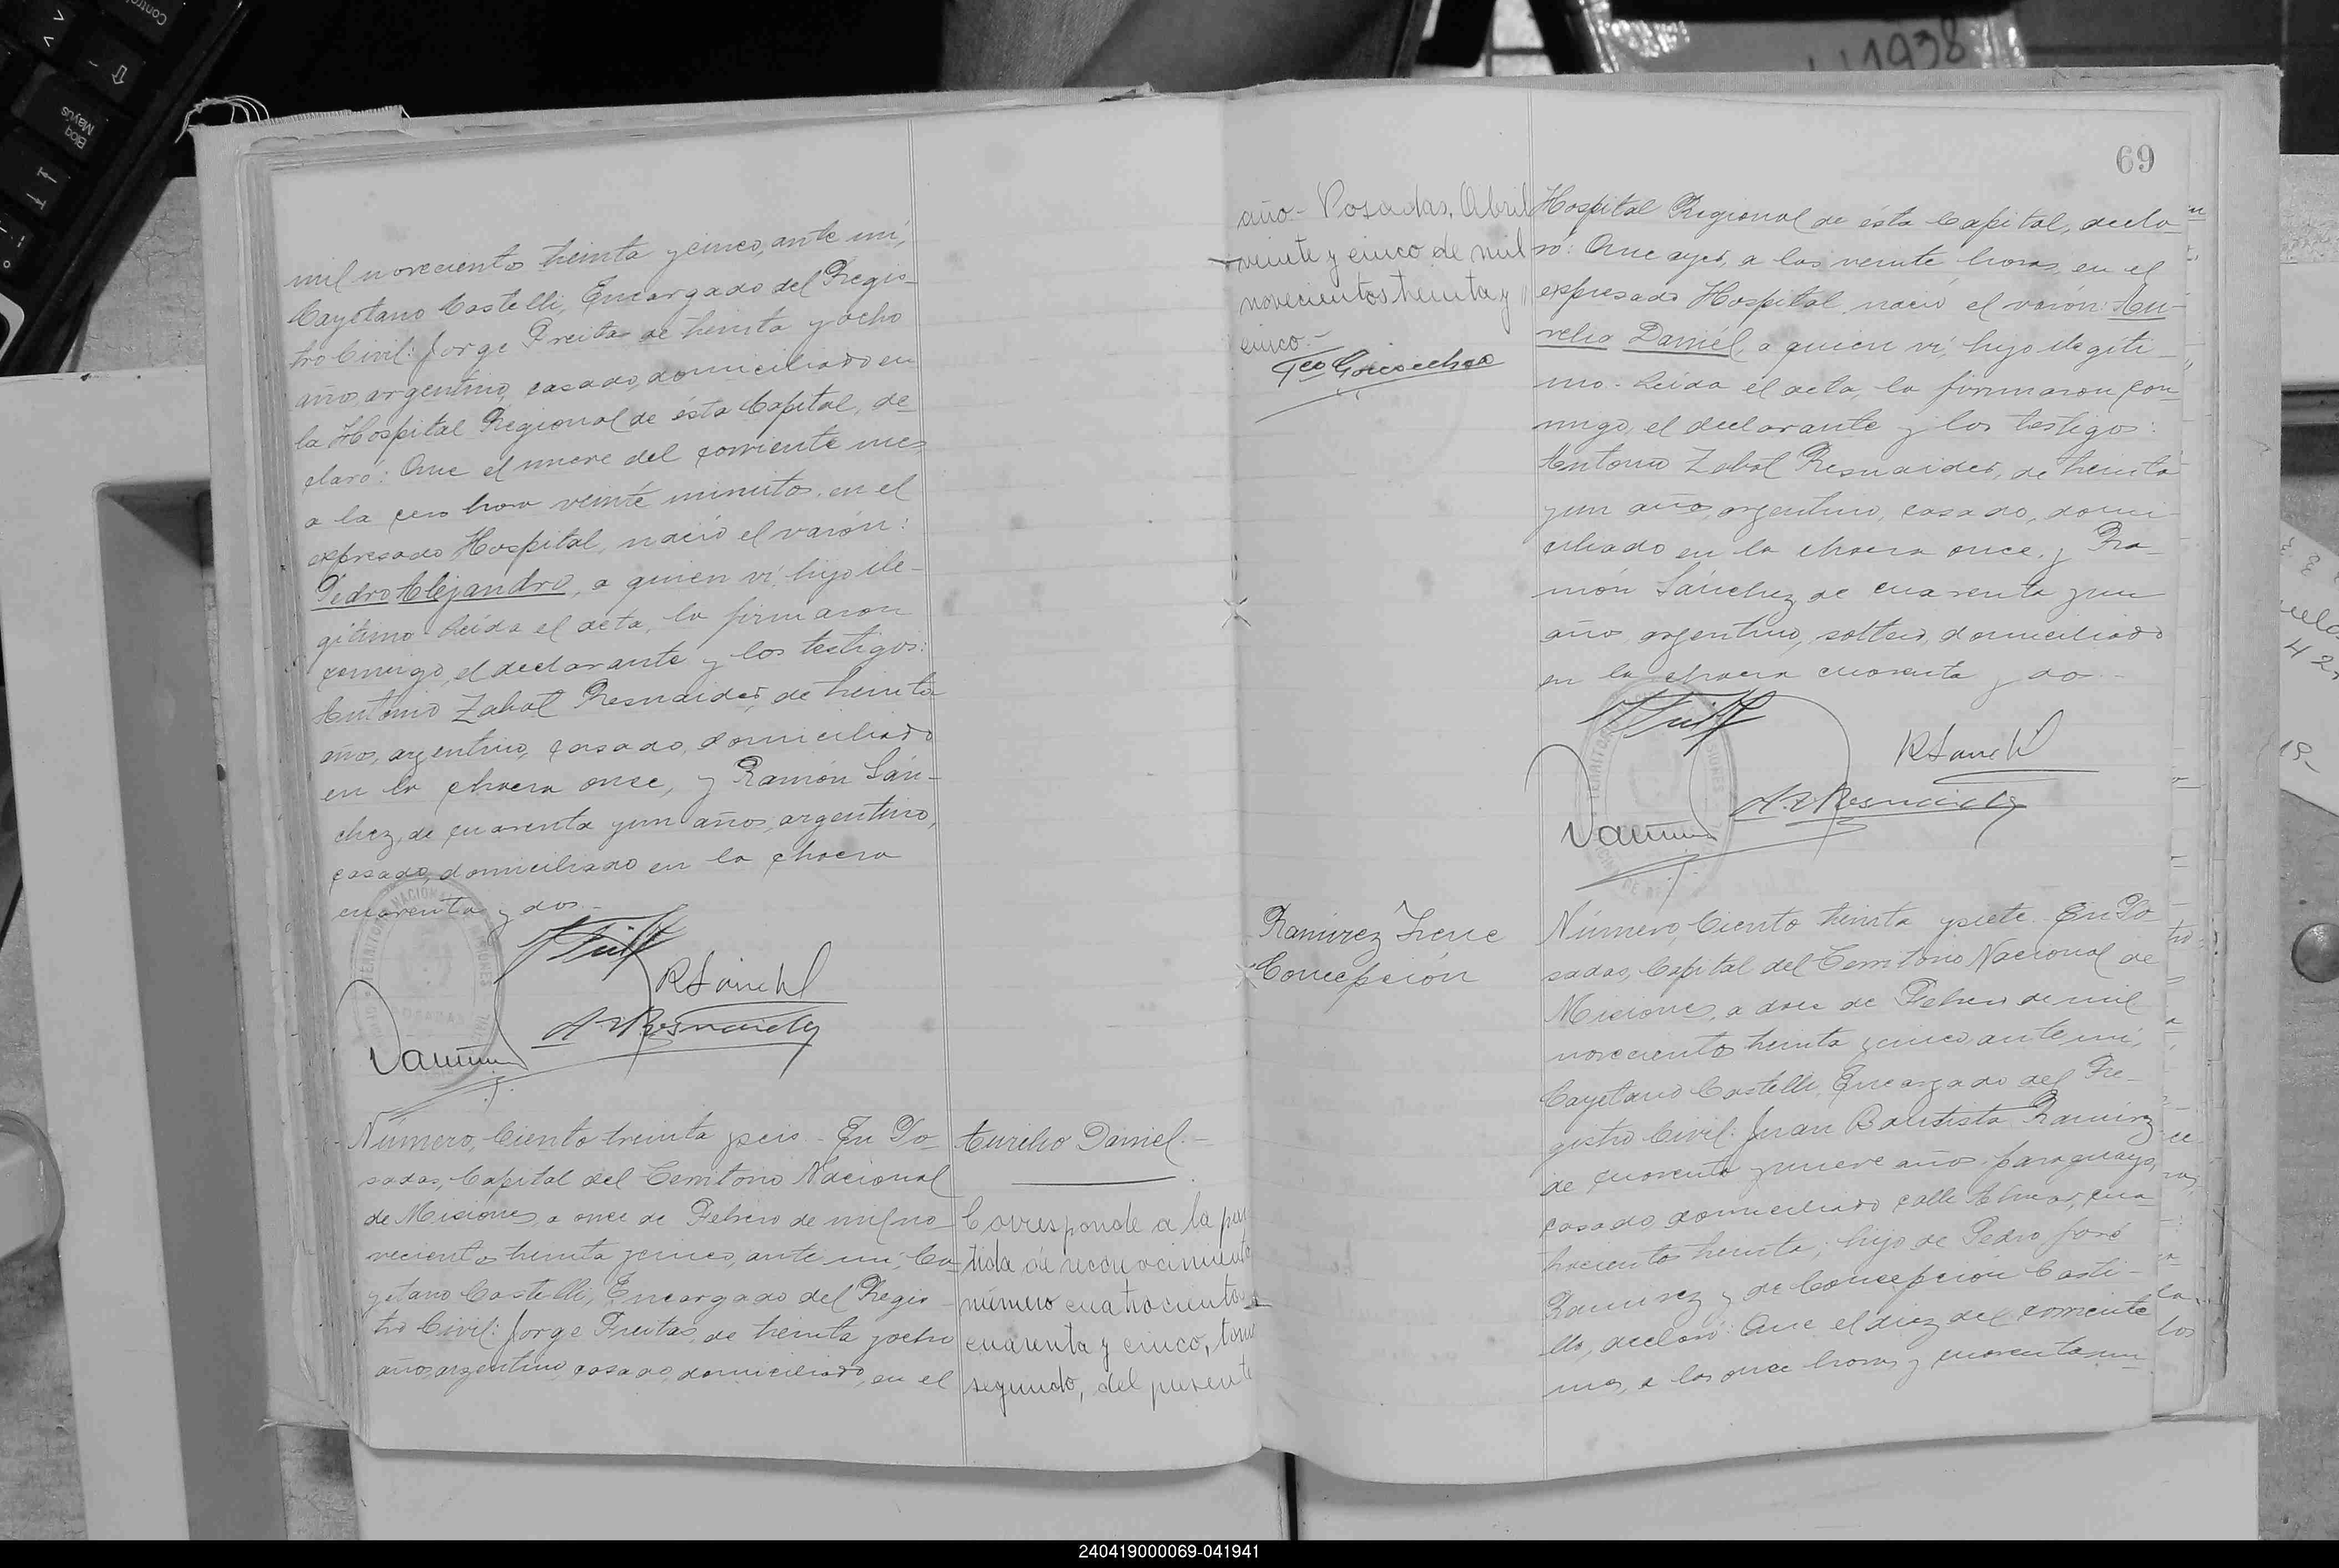 mil novecientos treinta y cinco, ante mí,
Cayetano Castelli, Encargado del Regis-
tro Civil: Jorge Freitas de treinta y ocho
años, argentino, casado, domiciliado en
la Hospital Regional de ésta Capital, de-
claró: Que el nueve del corriente mes,
a la cero hora veinte minutos, en el
expresado Hospital, nació el varón:
Pedro Alejandro, a quien ví, hijo ile-
gítimo. Leída el acta, la firmaron
conmigo, el declarante y los testigos:
Antonio Zabat Resnaider, de treinta
años, argentino, casado, domiciliado
en la chacra once, y Ramón Sán-
chez, de cuarenta y un años, argentino,
casado, domiciliado en la chacra
cuarenta y dos.-
R Sánchez
A Z Resnaider
Número, Ciento treinta y seis.- En Po-
sadas, Capital del Territorio Nacional
de Misiones, a once de Febrero de mil no-
vecientos treinta y cinco, ante mí, Ca-
yetano Castelli, Encargado del Regis-
tro Civil: Jorge Freitas, de treinta y ocho
años, argentino, casado, domiciliado, en el
Aurelio Daniel.-
Corresponde a la par
tida de reconocimiento
número cuatrocientos
cuarenta y cinco, tomo
segundo, del presente
año.- Posadas, Abril
veinte y cinco de mil
novecientos treinta y
cinco.-
69
Hospital Regional de ésta Capital, decla-
ró: Que ayer, a las veinte horas, en el
expresado Hospital, nació el varón: Au-
relio Daniel, a quien ví, hijo ilegíti-
mo.- Leída el acta, la firmaron con-
migo, el declarante y los testigos:
Antonio Zabat Resnaider, de treinta
y un años, argentino, casado, domi-
ciliado en la chacra once, y Ra-
món Sánchez, de cuarenta y un
años, argentino, soltero, domiciliado
en la chacra cuarenta y dos.-
R Sánchez
A Z Resnaider
Ramírez Irene
Concepción
Número, Ciento treinta y siete.- En Po-
sadas, Capital del Territorio Nacional de
Misiones, a doce de Febrero de mil
novecientos treinta y cinco, ante mí,
Cayetano Castelli, Encargado del Re-
gistro Civil: Juan Bautista Ramírez
de cuarenta y nueve años, paraguayo,
casado, domiciliado calle Alvear, cua-
trocientos treinta; hijo de Pedro José
Ramírez y de Concepción Casti-
llo, declaró: Que el diez del corriente
mes, a las once horas y cuarenta mi
1938
240419000069-041941